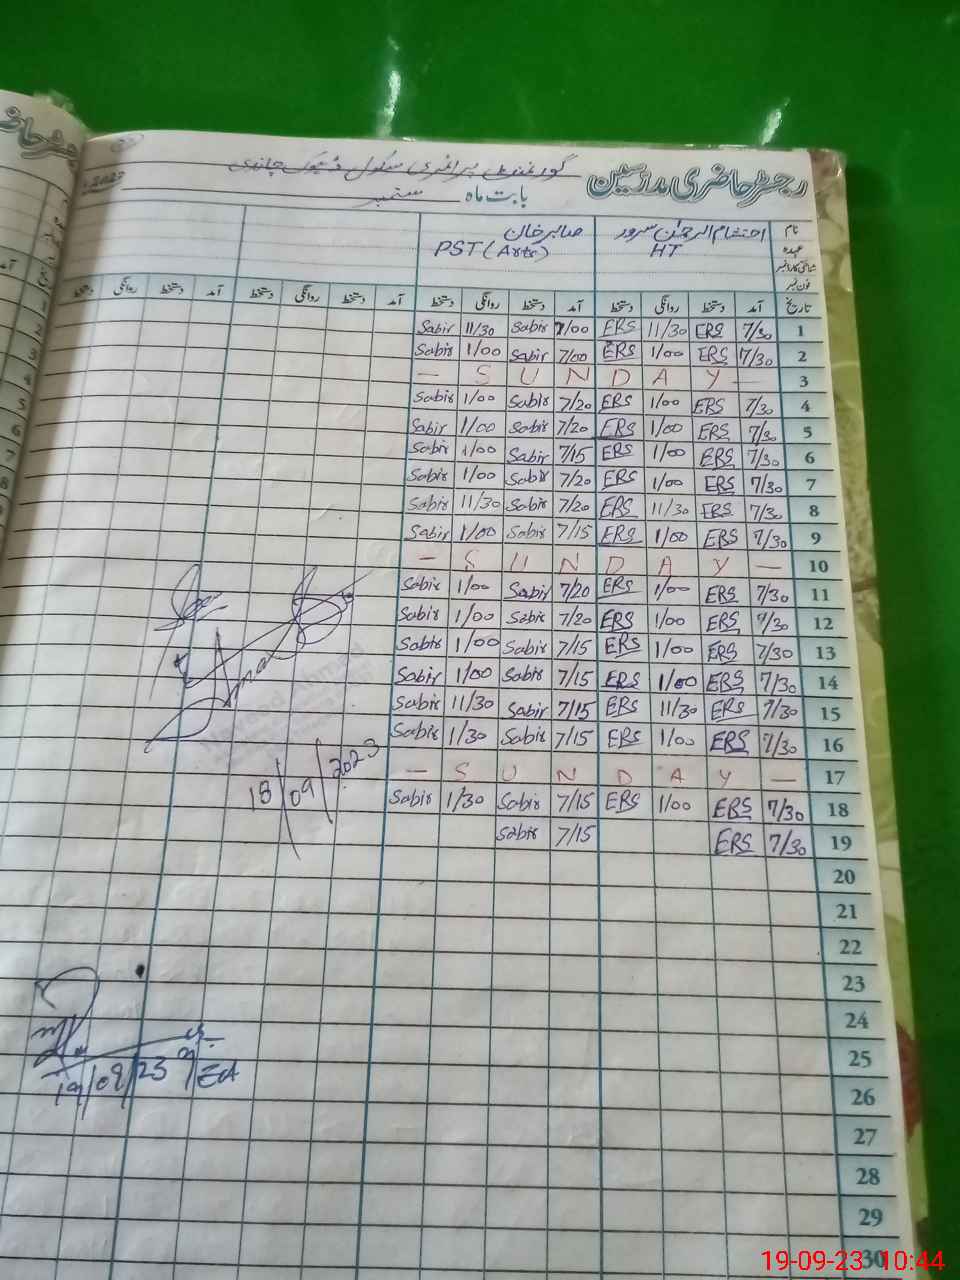 رجسٹر حاضری مدرسین
گورنمنٹ پرائمری سکول
بابت ماہ ستمبر 2023
نام احتشام الرحمٰن سرور صابر خان
عہدہ HT PST (Arts)
شناختی کارڈ نمبر
فون نمبر
تاریخ آمد دستخط روانگی دستخط آمد دستخط روانگی دستخط آمد دستخط روانگی دستخط آمد دستخط روانگی دستخط
Sabir 11/30 Sabir 7/00 ERS 11/30 ERS 7/30 1
Sabir 1/00 Sabir 7/00 ERS 1/00 ERS 7/30 2
— S U N D A Y — 3
Sabir 1/00 Sabir 7/20 ERS 1/00 ERS 7/30 4
Sabir 1/00 Sabir 7/20 ERS 1/00 ERS 7/30 5
Sabir 1/00 Sabir 7/15 ERS 1/00 ERS 7/30 6
Sabir 1/00 Sabir 7/20 ERS 1/00 ERS 7/30 7
Sabir 11/30 Sabir 7/20 ERS 11/30 ERS 7/30 8
Sabir 1/00 Sabir 7/15 ERS 1/00 ERS 7/30 9
— S U N D A Y — 10
Sabir 1/00 Sabir 7/20 ERS 1/00 ERS 7/30 11
Sabir 1/00 Sabir 7/20 ERS 1/00 ERS 7/30 12
Sabir 1/00 Sabir 7/15 ERS 1/00 ERS 7/30 13
Sabir 1/00 Sabir 7/15 ERS 1/00 ERS 7/30 14
Sabir 11/30 Sabir 7/15 ERS 11/30 ERS 7/30 15
Sabir 1/30 Sabir 7/15 ERS 1/00 ERS 7/30 16
— S U N D A Y — 17
Sabir 1/30 Sabir 7/15 ERS 1/00 ERS 7/30 18
Sabir 7/15 ERS 7/30 19
20
21
22
23
24
25
26
27
28
29
30
Ahmad
18/09/2023
19/09/23
19-09-23 10:44